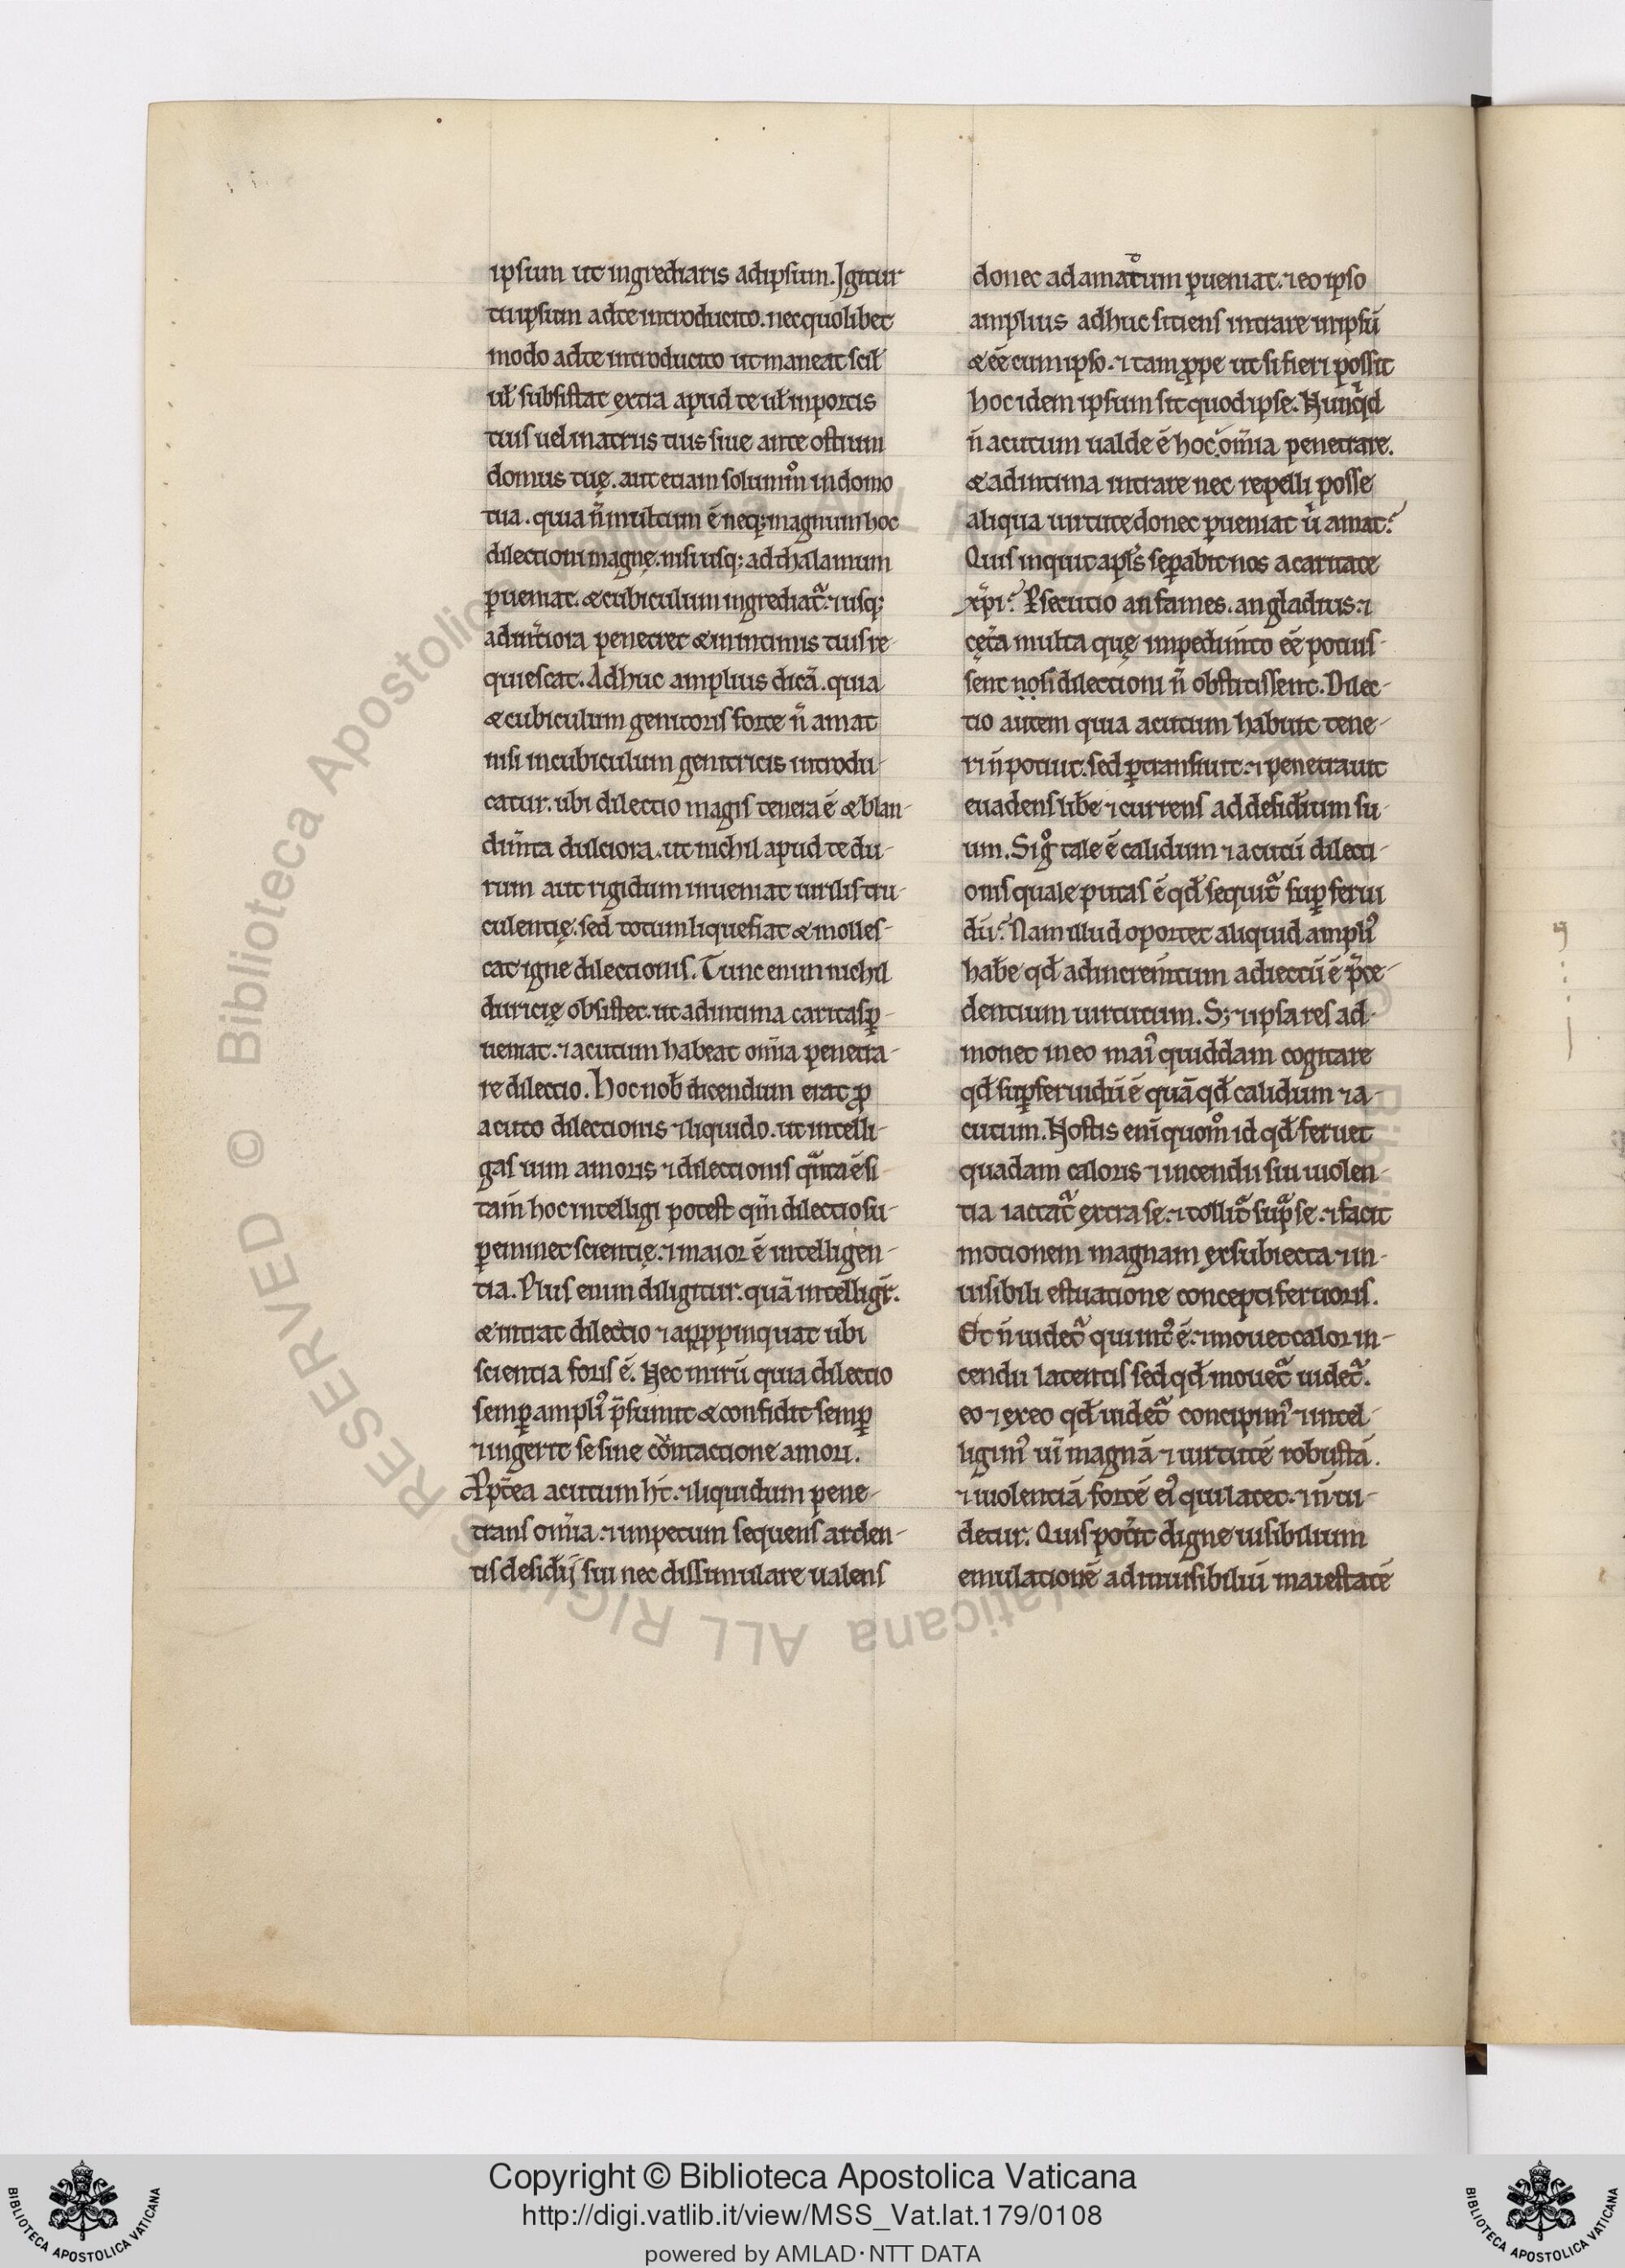 ipsum ut ingrediaris ad ipsum. Igitur
tu ipsum ad te introducito. nec quolibet
modo ad te introducito ut maneat scil̄
ul̄ subsistat extra apud te ul̄ in portis
tuis uel in atriis tuis siue ante ostium
domus tuę. aut etiam solummͦ in domo
tua. quia n̄ multum ē neq; magnum hoc
dilectioni magnę. nisi usq; ad thalamum
ꝑueniat. & cubiculum ingrediat᷑. ⁊ usq;
ad int̄iora penetret & in intimis tuis re-
quiescat. Adhuc amplius dicā. quia
& cubiculum genitoris forte n̄ amat
nisi in cubiculum genitricis introdu-
catur. ubi dilectio magis tenera ē & blan-
dim̄ta dulciora. ut nichil apud te du-
rum aut rigidum inueniat uirilis tru-
culentię. sed totum liquefiat & molles-
cat igne dilectionis. Tunc enim nichil
duricię obsistet. ut ad intima caritas ꝑ-
ueniat. ⁊ acutum habeat om̄ia penetra-
re dilectio. Hoc nob̄ dicendum erat ꝓ
acuto dilectionis ⁊ liquido. ut intelli-
gas uim amoris ⁊ dilectionis q̄nta ē si
tam̄ hoc intelligi potest qm̄ dilectio su-
ꝑeminet scientię. ⁊ maior ē intelligen-
tia. Plus enim diligitur. quā intelligit᷑.
& intrat dilectio ⁊ apꝓpinquat ubi
scientia foris ē. Nec mirū quia dilectio
semꝑ ampliꝰ p̄sumit & confidit semꝑ
⁊ ingerit se sine cōntactione amori.
Ꝓpt̄ea acutum h̄t. ⁊ liquidum pene-
trans om̄ia. ⁊ impetum sequens arden-
tis desid̄ij sui nec dissimulare ualens
donec ad amatum ꝑueniat. ⁊ eo ipso
amplius adhuc sitiens intrare in ipsū
& eē cum ipso. ⁊ tam ꝓpe ut si fieri possit
hoc idem ipsum sit quod ipse. Nunqͥd
n̄ acutum ualde ē hoc. om̄ia penetrare.
& ad intima intrare nec repelli posse
aliqua uirtute donec ꝑueniat ů amat?
Quis inquit apl̄s seꝑabit nos a caritate
xp̄i? Ꝑsecutio an fames. an gladius. ⁊
cęt̄a multa quę impedim̄to eē potuis-
sent nosi dilectioni n̄ obstitissent. Dilec-
tio autem quia acutum habuit tene-
ri n̄ potuit. sed ꝑtransiuit. ⁊ penetrauit
euadens lib̄e ⁊ currens ad desid̄ium su-
um. Si gͦ tale ē calidum ⁊ acutū dilecti-
onis quale putas ē qd̄ sequit᷑ suꝑferui
dū? Nam illud oportet aliquid ampliꝰ
hab̄e qd̄ ad increm̄tum adiectū ē p̄ce-
dentium uirtutum. S; ⁊ ipsa res ad-
monet in eo maiꝰ quiddam cogitare
qd̄ suꝑferuidū ē quā qd̄ calidum ⁊ a-
cutum. Nostis eni quomͦ id qd̄ feruet
quadam caloris ⁊ incendii sui uiolen-
tia iactat᷑ extra se. ⁊ tollit᷑ supͣ se. ⁊ facit
motionem magnam ex subiecta ⁊ in-
uisibili estuatione concepti feruoris.
Et n̄ uidet᷑ qui intꝰ ē. ⁊ mouet calor in-
cendii latentis sed qd̄ mouet᷑ uidet᷑.
eo ⁊ ex eo qd̄ uidet᷑ concipimꝰ ⁊ intel-
ligimꝰ uī magnā ⁊ uirtutē robustā.
⁊ uiolentiā fortē eiꝰ qui latet. ⁊ n̄ ui-
detur. Quis pot̄it digne uisibilium
emulationē ad inuisibiliū maiestatē
Copyright © Biblioteca Apostolica Vaticana
http://digi.vatlib.it/view/MSS_Vat.lat.179/0108
powered by AMLAD·NTT DATA